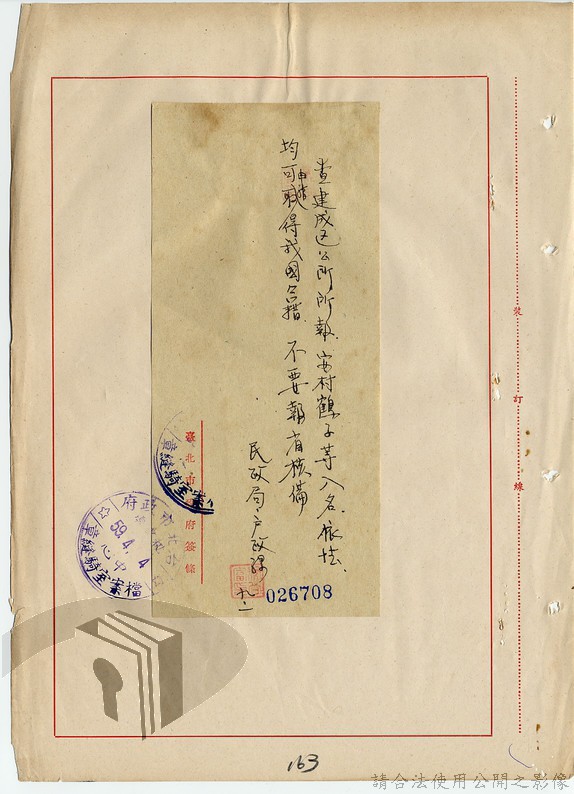 查建成區公所所報安村鶴子等八名依法
均可申請取得我國國籍不要報省核備
民政局戶政課
九、二
026708
臺北市政府簽條
檔案室騎縫章
59.4.4
檔案室騎縫章
裝
訂
線
163
請合法使用公開之影像